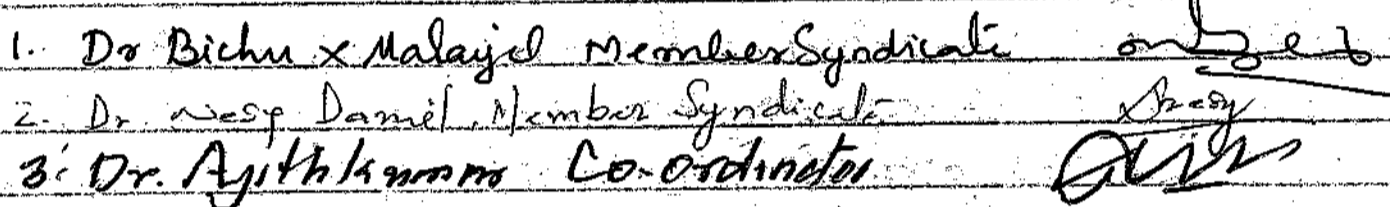 1. Dr Bichu x Malayil Member Syndicate
2. Dr. Nesy Daniel, Member Syndicate
3. Dr. Ajithkumar Co-ordinator